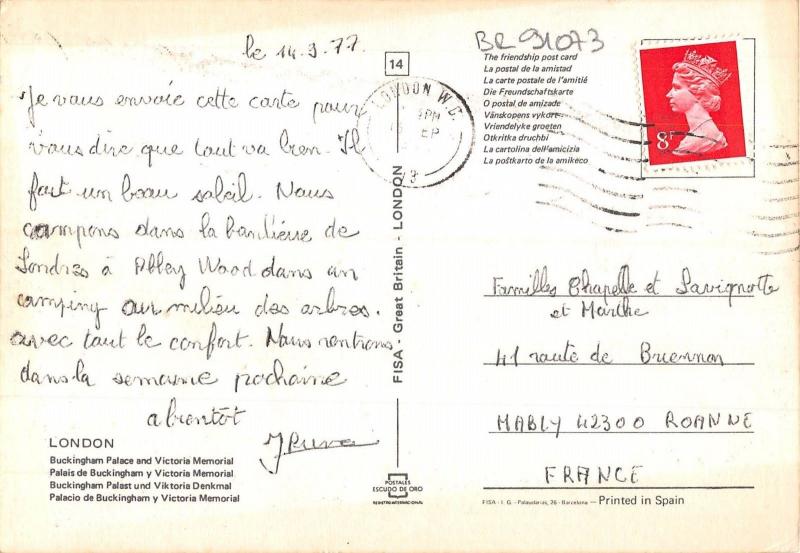 le 14.9.77.
Je vous envoie cette carte pour
vous dire que tout va bien. Il
fait un beau soleil. Nous
campons dans la banlieue de
Londres à Abbey Wood dans un
camping au milieu des arbres.
avec tout le confort. Nous rentrons
dans la semaine prochaine
a bientôt
LONDON
Buckingham Palace and Victoria Memorial
Palais de Buckingham y Victoria Memorial
Buckingham Palast und Viktoria Denkmal
Palacio de Buckingham y Victoria Memorial
14
FISA - Great Britain - LONDON
POSTALES
ESCUDO DE ORO
REGISTRO INTERNACIONAL
BR 91073
The friendship post card
La postal de la amistad
La carte postale de l'amitié
Die Freundschaftskarte
O postal de amizade
Vänskopens vykort
Vriendelyke groeten
Otkritka druchbi
La cartolina dell'amicizia
La poŝtkarto de la amikeco
LONDON W.C.
PM
EP
8P
Familles Chapelle et Lavignotte
et Marthe
41 route de Briennon
MABLY 42300 ROANNE
FRANCE
FISA - I. G. - Palaudarias, 26 - Barcelona - Printed in Spain